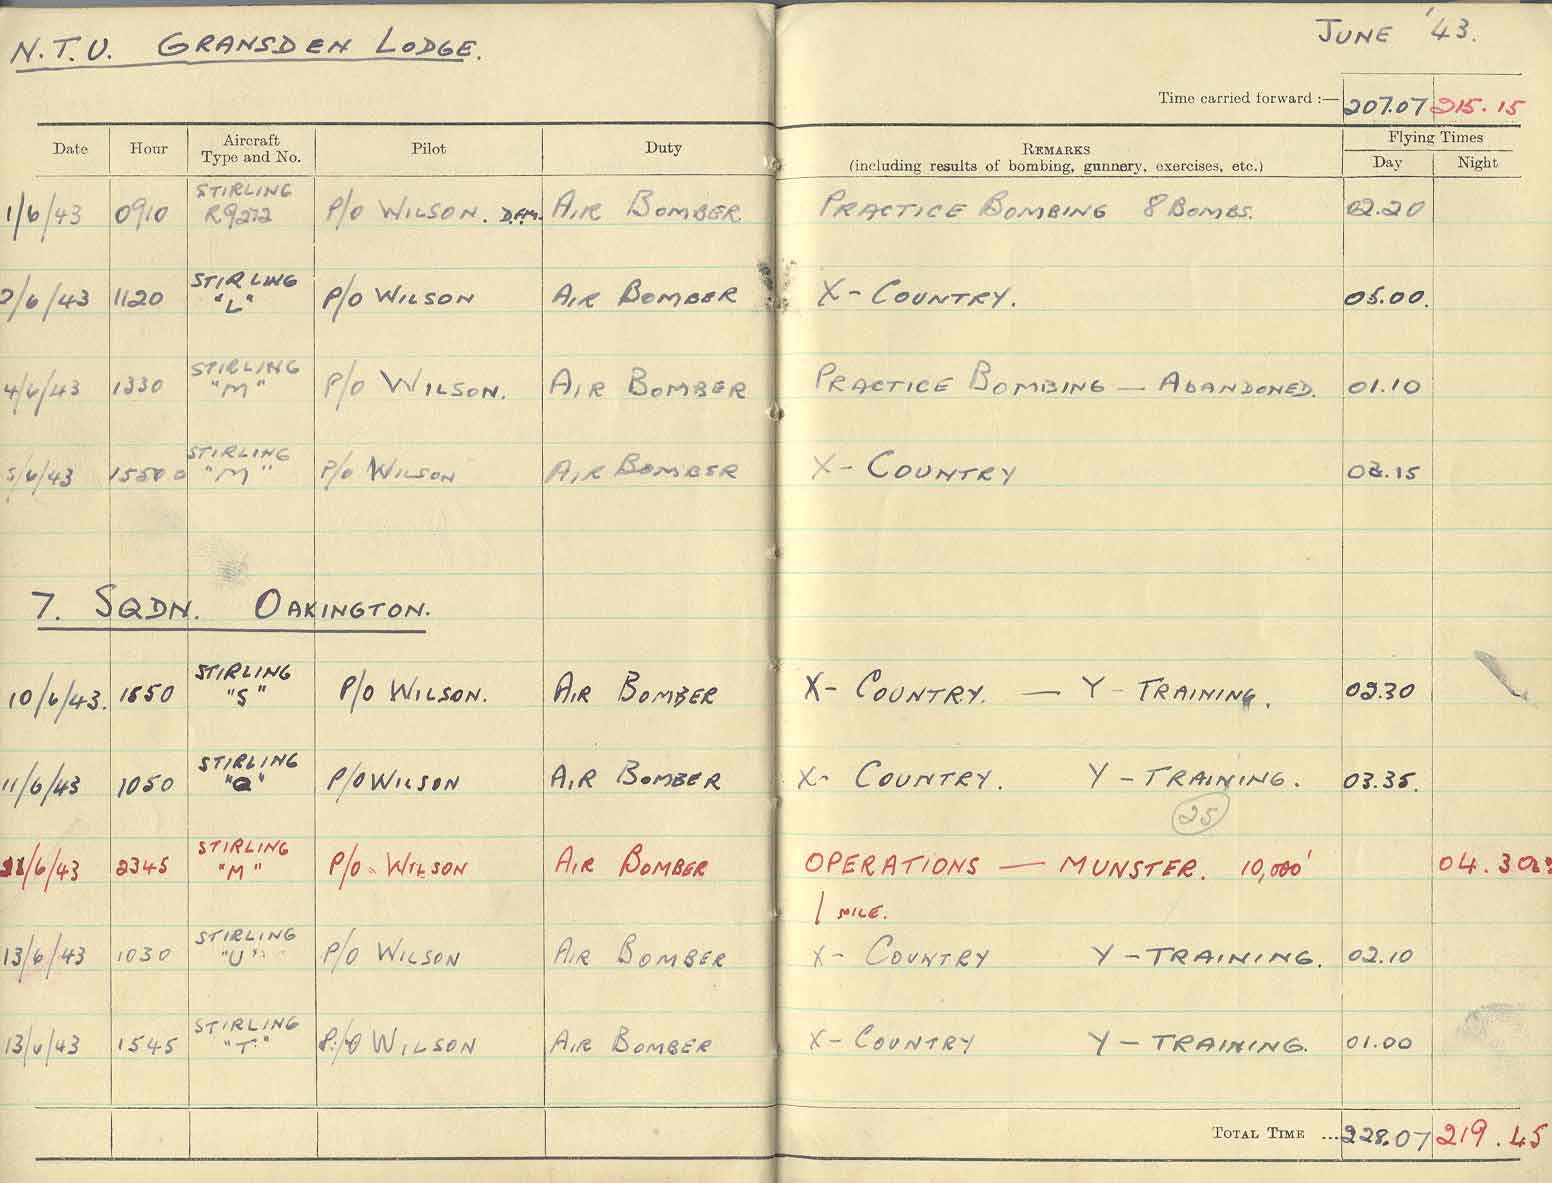 N.T.U. GRANSDEN LODGE.
JUNE '43.
Time carried forward :— 207.07 215.15
Date Hour Aircraft Type and No. Pilot Duty REMARKS (including results of bombing, gunnery, exercises, etc.) Flying Times Day Night
1/6/43 0910 STIRLING R9272 P/O WILSON. D.F.M. AIR BOMBER. PRACTICE BOMBING 8 BOMBS. 02.20
2/6/43 1120 STIRLING "L" P/O WILSON AIR BOMBER X- COUNTRY. 05.00.
4/6/43 1330 STIRLING "M" P/O WILSON. AIR BOMBER PRACTICE BOMBING — ABANDONED. 01.10
5/6/43 STIRLING "M" P/O WILSON AIR BOMBER X- COUNTRY 03.15
7. SQDN. OAKINGTON.
10/6/43. 1550 STIRLING "S" P/O WILSON. AIR BOMBER X- COUNTRY. — Y - TRAINING. 02.30
11/6/43 1050 STIRLING "Q" P/O WILSON AIR BOMBER X- COUNTRY. Y - TRAINING. 03.35.
25
11/6/43 2345 STIRLING "M" P/O. WILSON AIR BOMBER OPERATIONS — MUNSTER. 10,000' 04.30
1 MILE.
13/6/43 1030 STIRLING "U" P/O WILSON AIR BOMBER X- COUNTRY Y - TRAINING. 02.10
13/6/43 1545 STIRLING "T" P/O WILSON AIR BOMBER X- COUNTRY Y - TRAINING. 01.00
TOTAL TIME ... 228.07 219.45